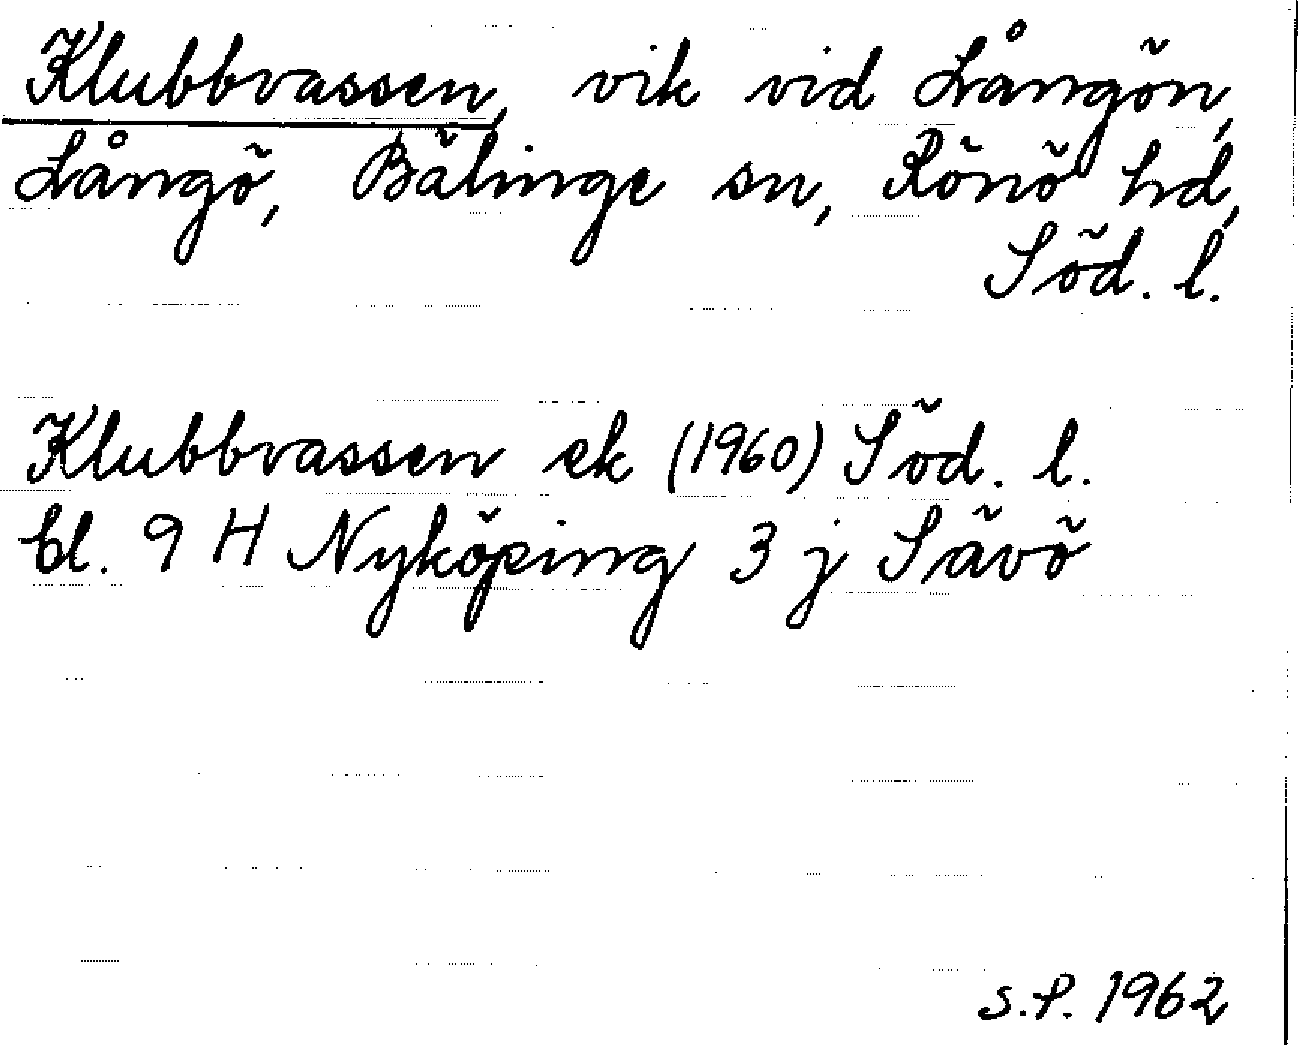 Klubbvassen, vik vid Långön,
Långö, Bälinge sn, Rönö hd,
Söd. l.
Klubbvassen ek (1960) Söd. l.
bl. 9 H Nyköping 3 j Sävö
S.P. 1962